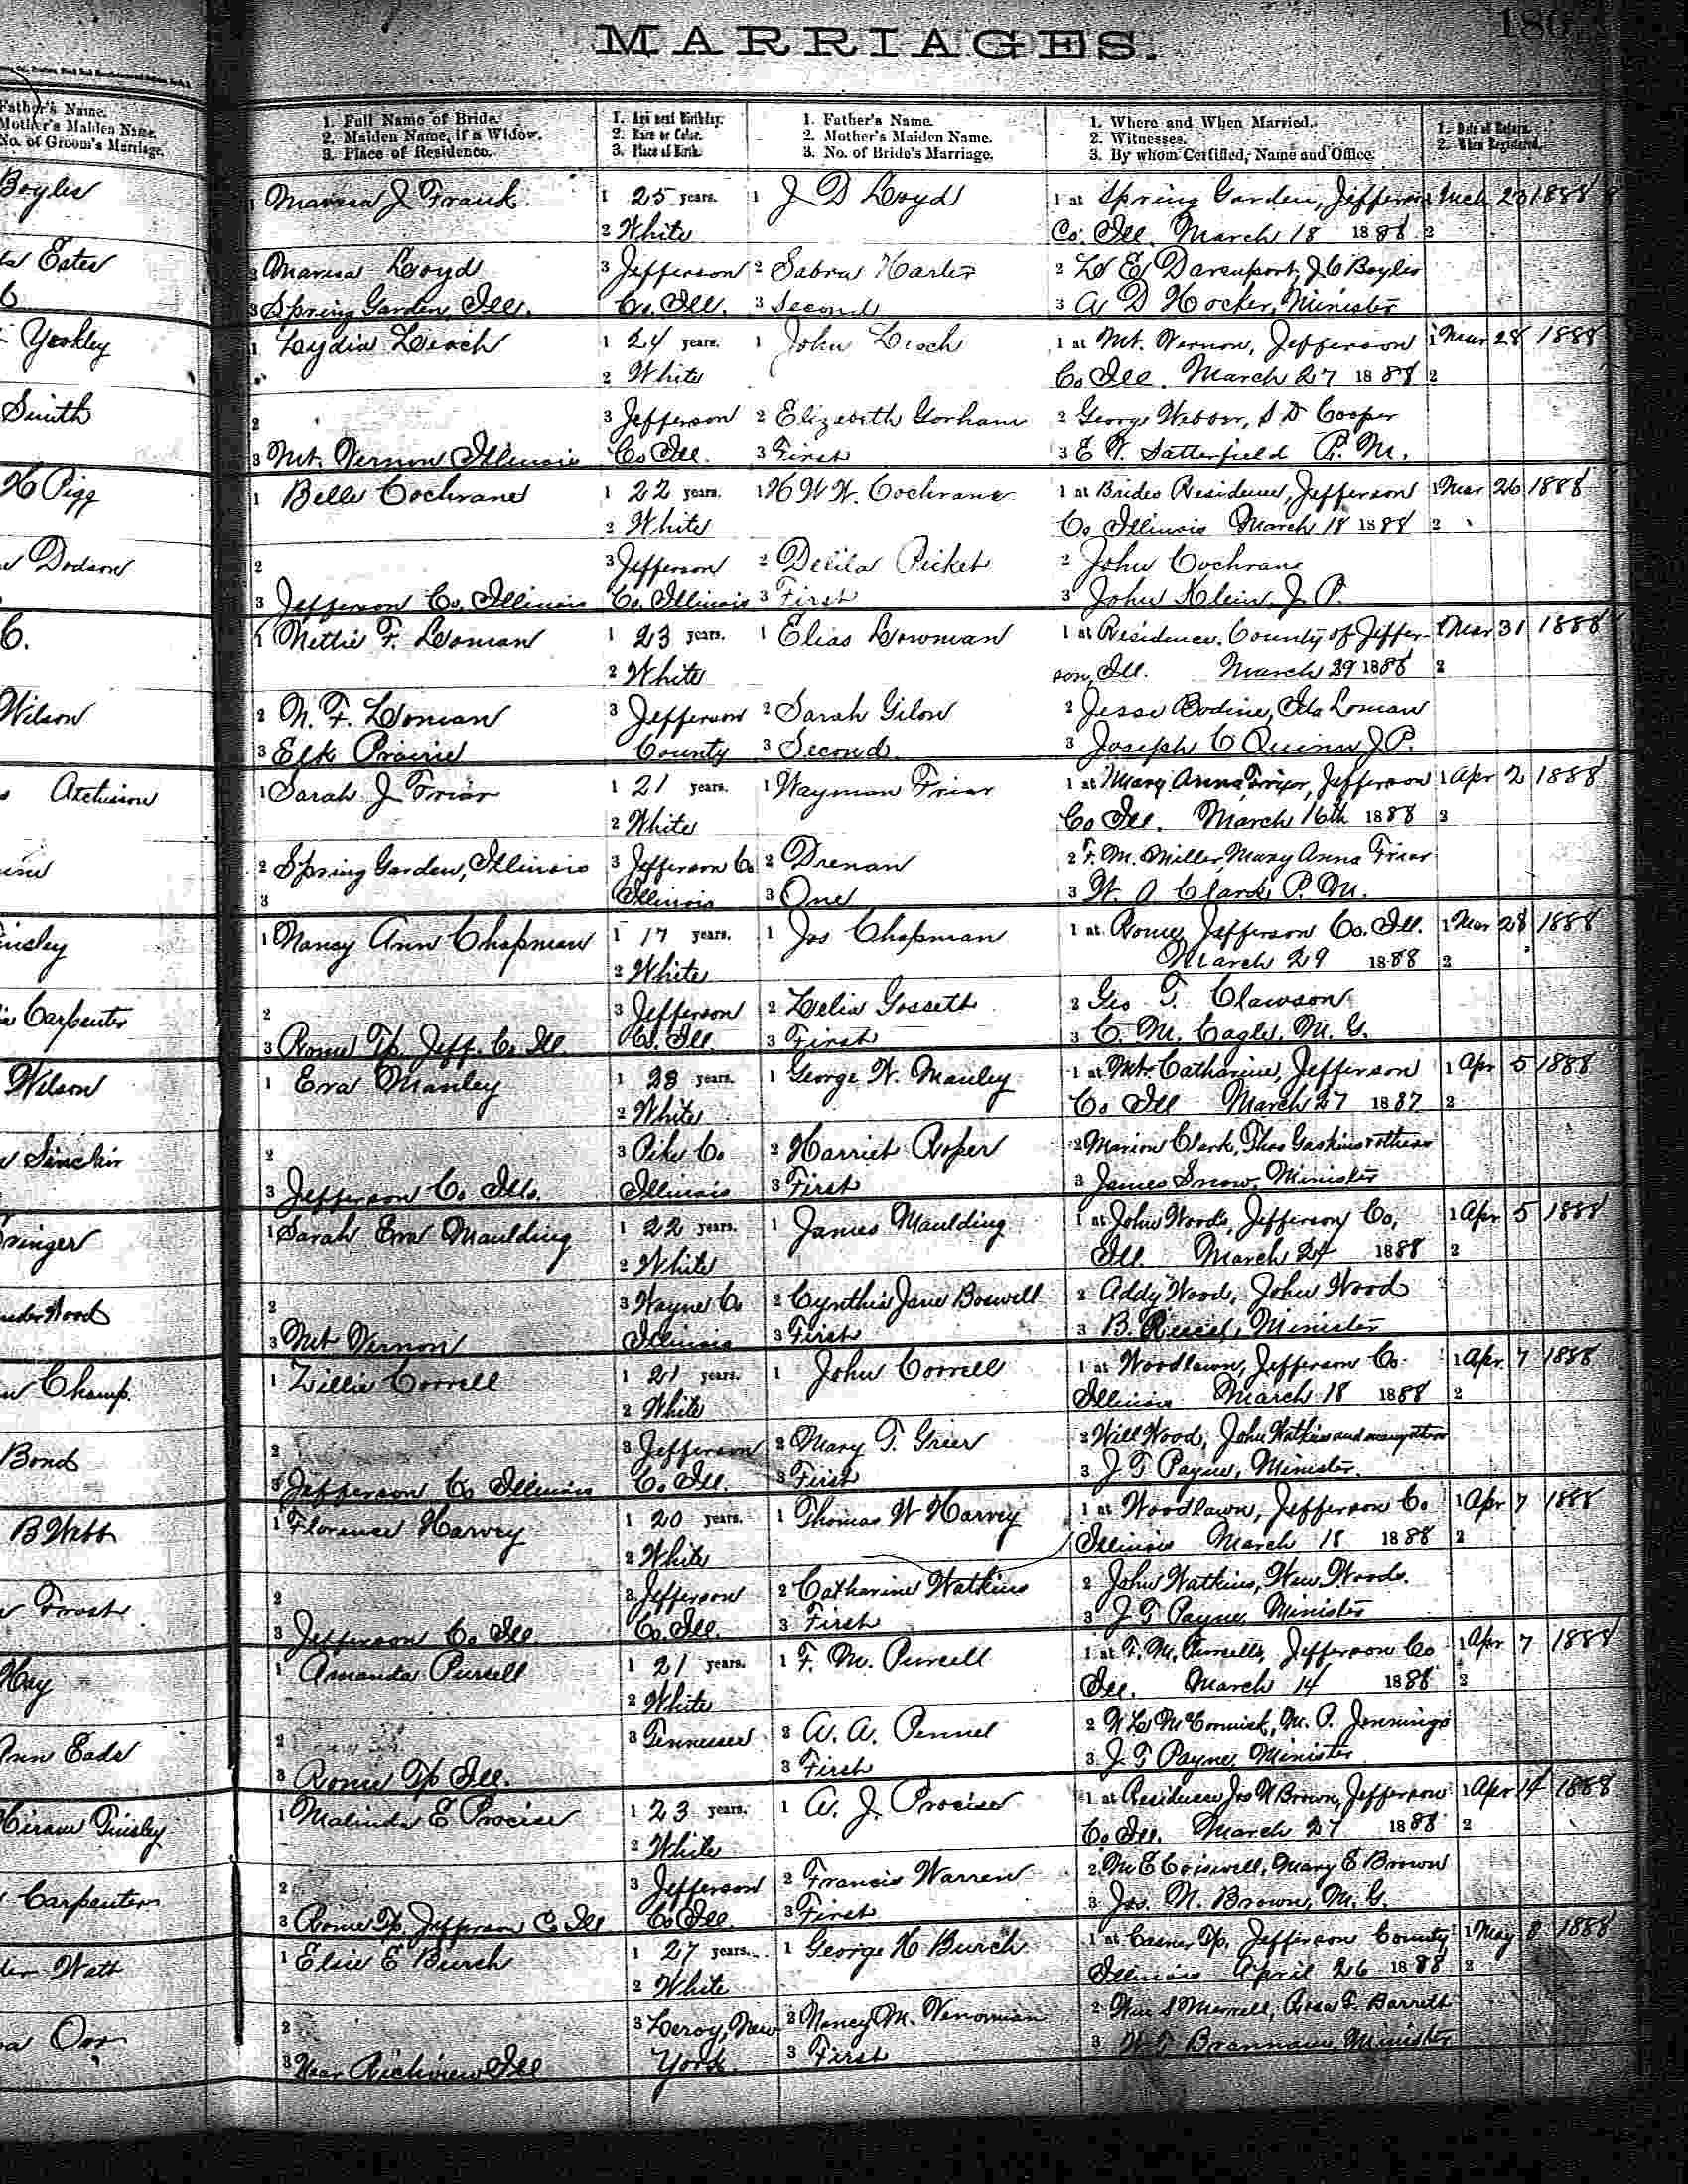 MARRIAGES.
Father's Name.
Mother's Maiden Name.
No. of Groom's Marriage.
1. Full Name of Bride.
2. Maiden Name, if a Widow.
3. Place of Residence.
1. Age next Birthday.
2. Race or Color.
3. Place of Birth.
1. Father's Name.
2. Mother's Maiden Name.
3. No. of Bride's Marriage.
1. Where and When Married.
2. Witnesses.
3. By whom Certified, Name and Office.
1. Date of Return.
2. When Registered.
Boyles
1 J. Frank 1 25 years. 1 J D Loyd 1 at Spring Garden, Jefferson 1 Mch 20 1888
2 White Co. Ill. March 18 1888 2
Estes 2 Loyd 3 Jefferson 2 Sabra 2 Davenport, J C Boyles
3 Spring Garden, Ill. Co. Ill. 3 Second 3 A D Hocker, Minister
Yeakley 1 Lydia Leach 1 24 years. 1 John Leach 1 at Mt. Vernon, Jefferson 1 Mar 28 1888
2 White Co Ill. March 27 1888 2
Smith 2 3 Jefferson 2 Elizabeth Gorham 2 George Webber, S D Cooper
3 Mt. Vernon Illinois Co Ill. 3 First 3 E. Satterfield P. M.
H Pigg 1 Belle Cochrane 1 22 years. 1 H W W. Cochrane 1 at Brides Residence, Jefferson 1 Mar 26 1888
2 White Co Illinois March 18 1888 2
Dodson 2 3 Jefferson 2 Delila Picket 2 John Cochrane
3 Jefferson Co, Illinois Co. Illinois 3 First 3 John Klein J. P.
C. 1 Nettie F. Loman 1 23 years. 1 Elias Lowman 1 at Residence. County of Jeffer- 1 Mar 31 1888
2 White son, Ill. March 29 1888 2
Wilson 2 N. F. Loman 3 Jefferson 2 Sarah Gilon 2 Jesse Bodine, Ida Loman
3 Elk Prairie County 3 Second 3 Joseph C Quinn J. P.
Atchison 1 Sarah J Friar 1 21 years. 1 Wayman Friar 1 at Mary Anna Friar, Jefferson 1 Apr 2 1888
2 White Co Ill. March 16th 1888 2
2 Spring Garden, Illinois 3 Jefferson Co 2 Drenan 2 F. M. Miller, Mary Anna Friar
3 Illinois 3 One 3 W. O Clark, P. M.
1 Nancy Ann Chapman 1 17 years. 1 Jos Chapman 1 at Rome Jefferson Co. Ill. 1 Mar 28 1888
2 White March 29 1888 2
Carpenter 2 3 Jefferson 2 Lelia Gossett 2 Geo T. Clawson
3 Rome Tp. Jeff. Co Ill. Co. Ill. 3 First 3 C. M. Cagle, M. G.
Wilson 1 Eva Manley 1 23 years. 1 George W. Manley 1 at Mt. Catharine, Jefferson 1 Apr 5 1888
2 White Co Ill March 27 1887 2
Sinclair 2 3 Pike Co 2 Harriet Roper 2 Marion Clark, Thos Gaskins & others
3 Jefferson Co Ills. Illinois 3 First 3 James Snow, Minister
1 Sarah Eva Maulding 1 22 years. 1 James Maulding 1 at John Wood's, Jefferson Co, 1 Apr 5 1888
2 White Ill. March 24 1888 2
2 3 Wayne Co 2 Cynthia Jane Boswell 2 Addy Wood, John Wood
3 Mt Vernon Illinois 3 First 3 B. Reece, Minister
Champ. 1 Zillie Correll 1 21 years. 1 John Correll 1 at Woodlawn, Jefferson Co. 1 Apr. 7 1888
2 White Illinois March 18 1888 2
Bond 2 3 Jefferson 2 Mary T. Greer 2 Will Wood, John Watkins and many others
3 Jefferson Co Illinois Co. Ill. 3 First 3 J T Payne, Minister.
B Webb 1 Florence Harvey 1 20 years. 1 Thomas W Harvey 1 at Woodlawn, Jefferson Co 1 Apr 7 1888
2 White Illinois March 18 1888 2
Frost 2 3 Jefferson 2 Catharine Watkins 2 John Watkins, Wm Woods.
3 Jefferson Co Ill. Co. Ill. 3 First 3 J T Payne, Minister
Hay 1 Amanda Purcell 1 21 years. 1 F. M. Purcell 1 at F. M. Purcells, Jefferson Co 1 Apr 7 1888
2 White Ill. March 14 1888 2
Ann Eads 2 3 Tennessee 2 A. A. Pennel 2 McCormick, M. P. Jennings
3 Rome Tp Ill. 3 First 3 J T Payne, Minister
Hiram Tinsley 1 Malinda E Procise 1 23 years. 1 A. J. Procise 1 at Residence Jos N Brown, Jefferson 1 Apr 14 1888
2 White Co Ill. March 27 1888 2
Carpenter 2 3 Jefferson 2 Francis Warren 2 M E Criswell, Mary E Brown
3 Rome Tp. Jefferson Co Ill Co Ill. 3 First 3 Jos. N. Brown, M. G.
Watt 1 Elsie E Burch 1 27 years. 1 George H Burch 1 at Casner Tp. Jefferson County 1 May 8 1888
2 White Illinois April 26 1888 2
Orr 2 3 Leroy, New 2 Nancy M. 2 Wm S Merrell, Rosa F. Barrett
3 Near Richview Ill York. 3 First 3 W T Brannum, Minister